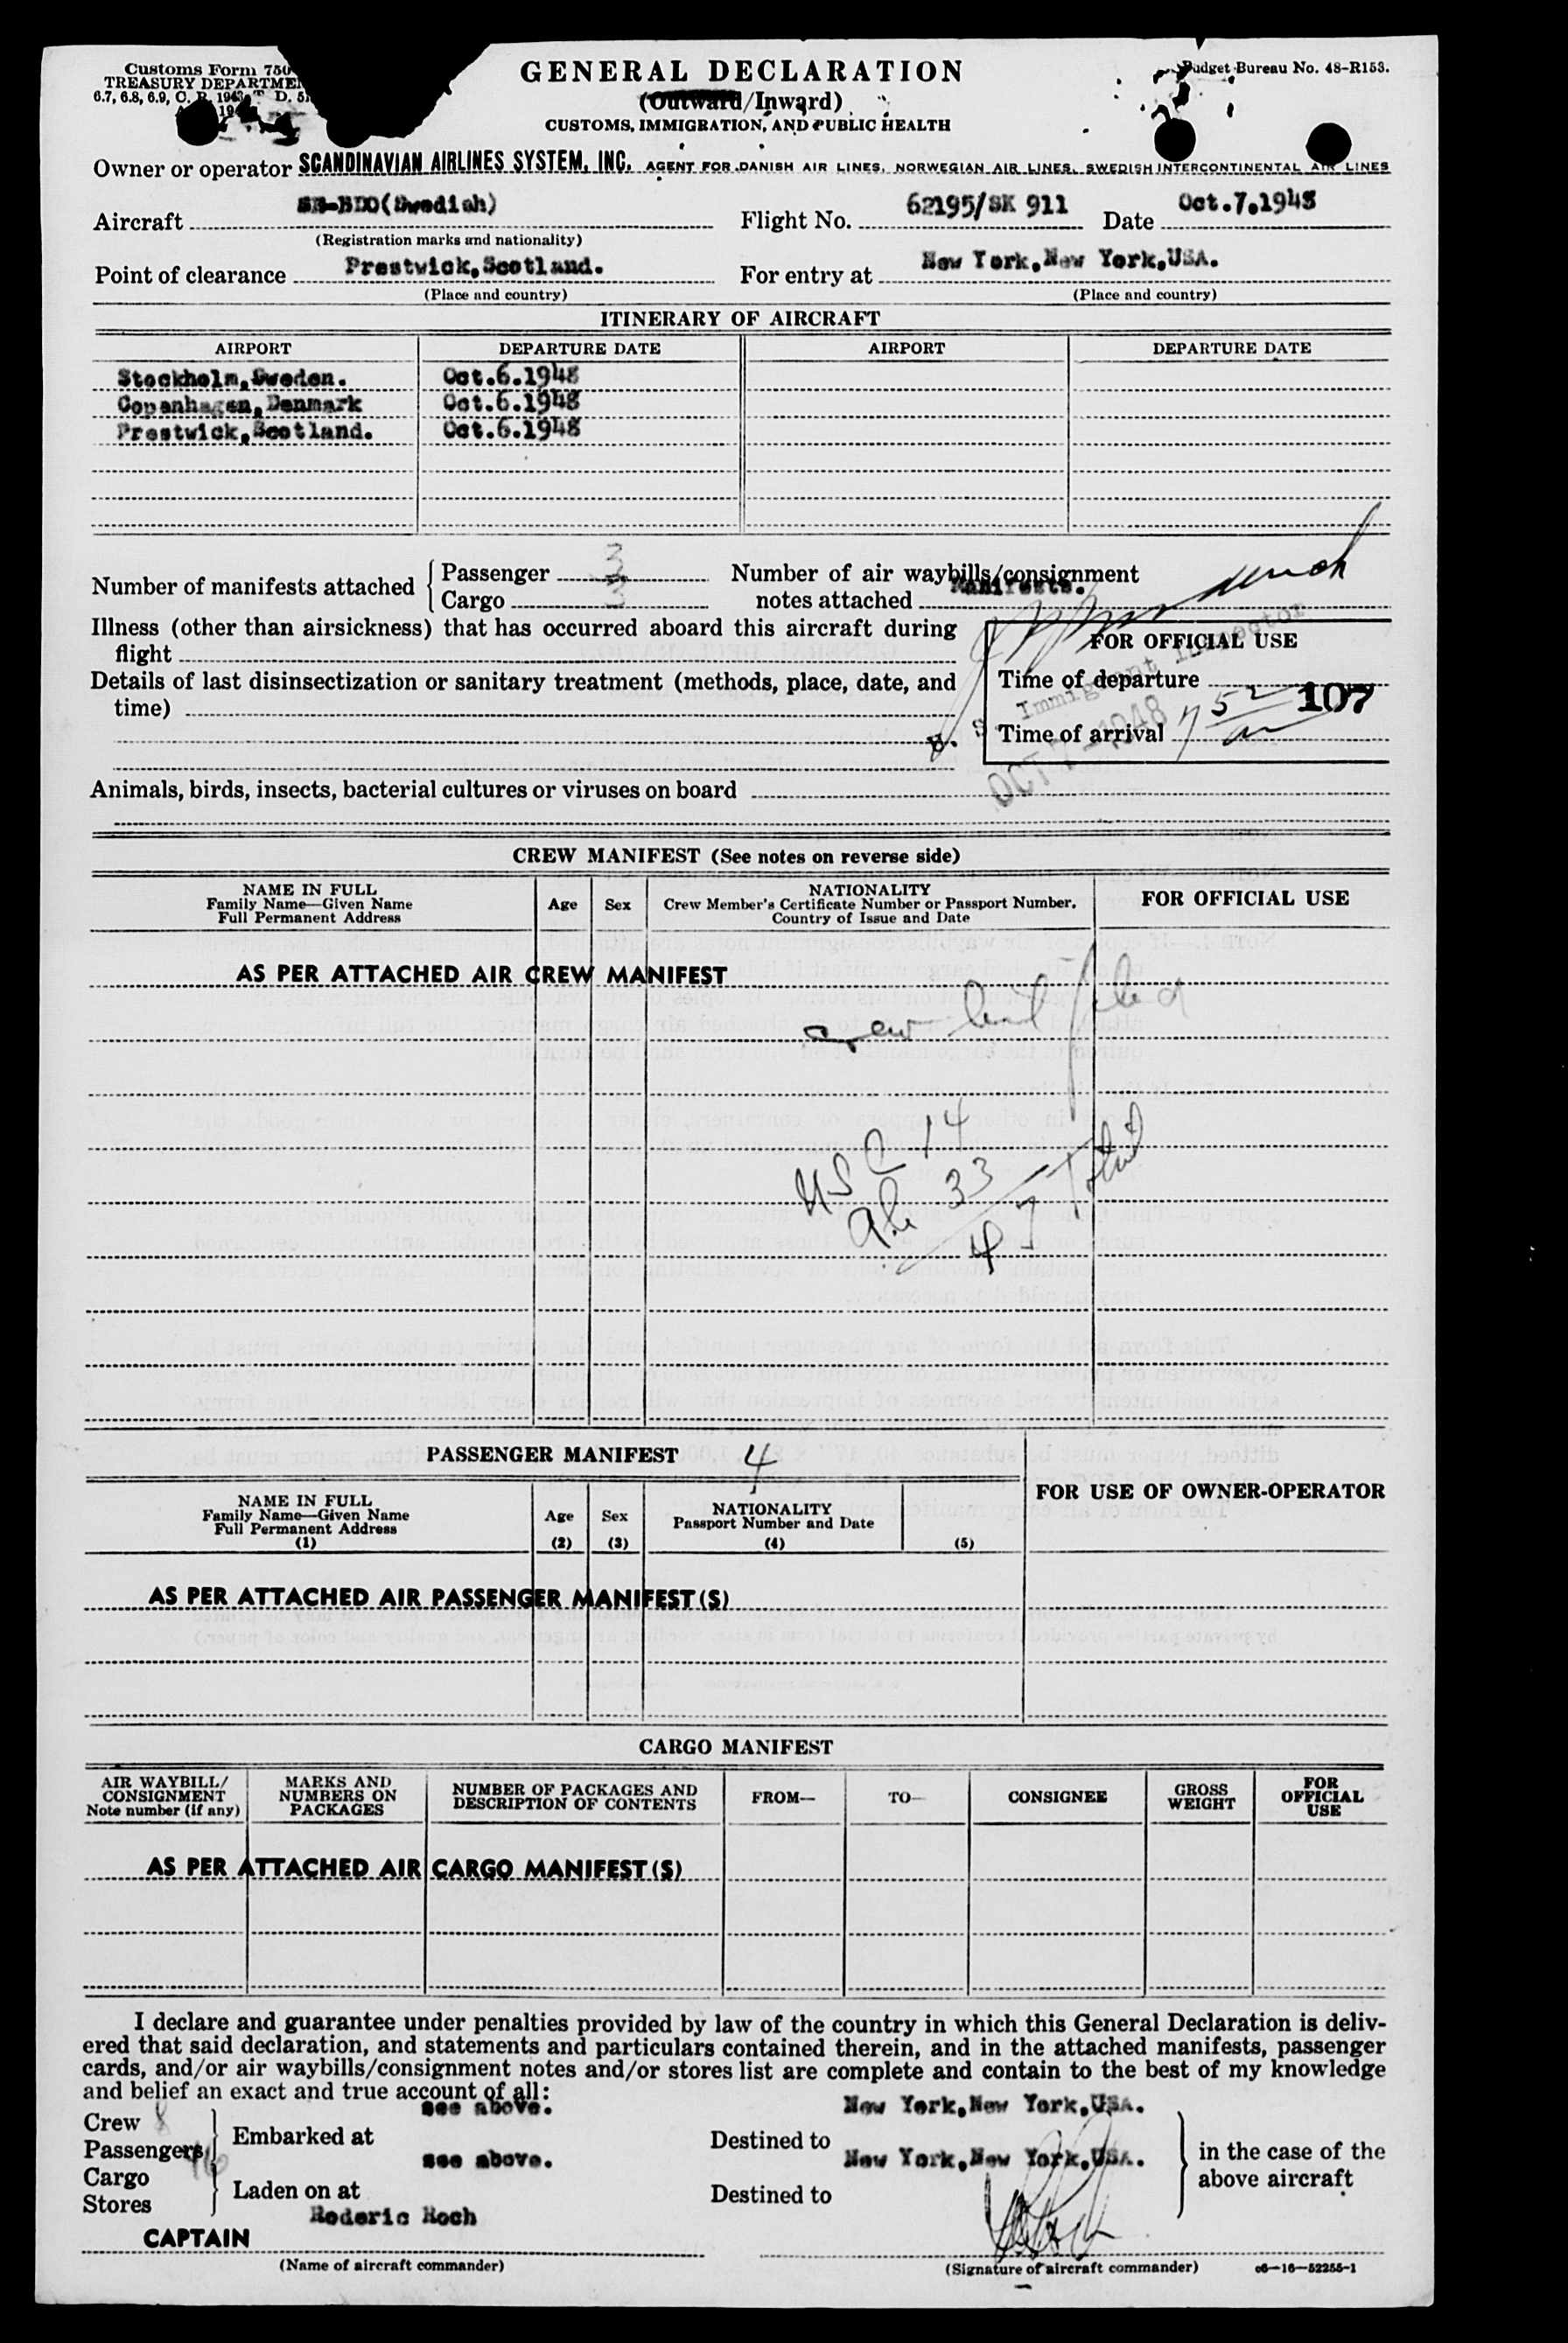 Customs Form 750
TREASURY DEPARTME
GENERAL DECLARATION
Budget Bureau No. 48-R153.
(Outward/Inward)
CUSTOMS, IMMIGRATION, AND PUBLIC HEALTH
Owner or operator SCANDINAVIAN AIRLINES SYSTEM, INC. AGENT FOR DANISH AIR LINES, NORWEGIAN AIR LINES, SWEDISH INTERCONTINENTAL AIR LINES
Aircraft SE-BDO(Swedish) Flight No. 62195/SK 911 Date Oct.7.1948
(Registration marks and nationality)
Point of clearance Prestwick,Scotland. For entry at New York,New York,USA.
(Place and country) (Place and country)
ITINERARY OF AIRCRAFT
AIRPORT DEPARTURE DATE AIRPORT DEPARTURE DATE
Stockholm,Sweden. Oct.6.1948
Copenhagen,Denmark Oct.6.1948
Prestwick,Scotland. Oct.6.1948
Number of manifests attached Passenger 3
Cargo 3
Number of air waybills/consignment
notes attached Manifests.
Illness (other than airsickness) that has occurred aboard this aircraft during
flight
Details of last disinsectization or sanitary treatment (methods, place, date, and
time)
FOR OFFICIAL USE
Time of departure
107
Time of arrival 7 52 am
U. S. Immigrant Inspector
OCT 7-1948
Animals, birds, insects, bacterial cultures or viruses on board
CREW MANIFEST (See notes on reverse side)
NAME IN FULL
Family Name—Given Name
Full Permanent Address
Age
Sex
NATIONALITY
Crew Member's Certificate Number or Passport Number.
Country of Issue and Date
FOR OFFICIAL USE
AS PER ATTACHED AIR CREW MANIFEST
crew list filed
USC 14
Ali 33
47 Total
PASSENGER MANIFEST 4
NAME IN FULL
Family Name—Given Name
Full Permanent Address
(1)
Age
(2)
Sex
(3)
NATIONALITY
Passport Number and Date
(4)
(5)
FOR USE OF OWNER-OPERATOR
AS PER ATTACHED AIR PASSENGER MANIFEST(S)
CARGO MANIFEST
AIR WAYBILL/
CONSIGNMENT
Note number (if any)
MARKS AND
NUMBERS ON
PACKAGES
NUMBER OF PACKAGES AND
DESCRIPTION OF CONTENTS
FROM—
TO—
CONSIGNEE
GROSS
WEIGHT
FOR
OFFICIAL
USE
AS PER ATTACHED AIR CARGO MANIFEST(S)
I declare and guarantee under penalties provided by law of the country in which this General Declaration is deliv-
ered that said declaration, and statements and particulars contained therein, and in the attached manifests, passenger
cards, and/or air waybills/consignment notes and/or stores list are complete and contain to the best of my knowledge
and belief an exact and true account of all:
Crew 8
Passengers
Cargo
Stores
see above.
Embarked at
see above.
Laden on at
New York,New York,USA.
Destined to
New York,New York,USA.
Destined to
in the case of the
above aircraft
Roderic Roch
CAPTAIN
(Name of aircraft commander) (Signature of aircraft commander) c6—16—52255-1